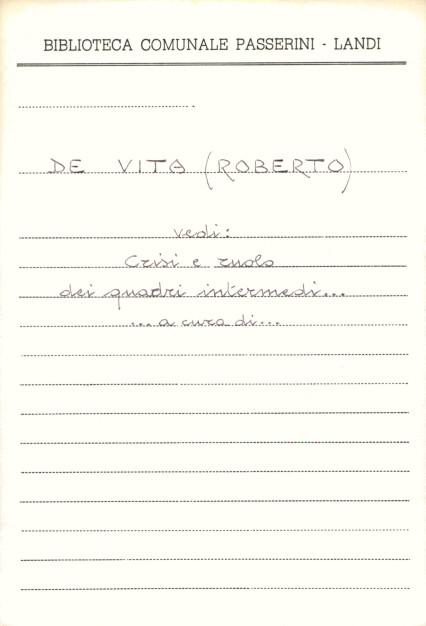 BIBLIOTECA COMUNALE PASSERINI - LANDI
DE VITA (ROBERTO)
vedi:
Crisi e ruolo
dei quadri intermedi...
... a cura di...